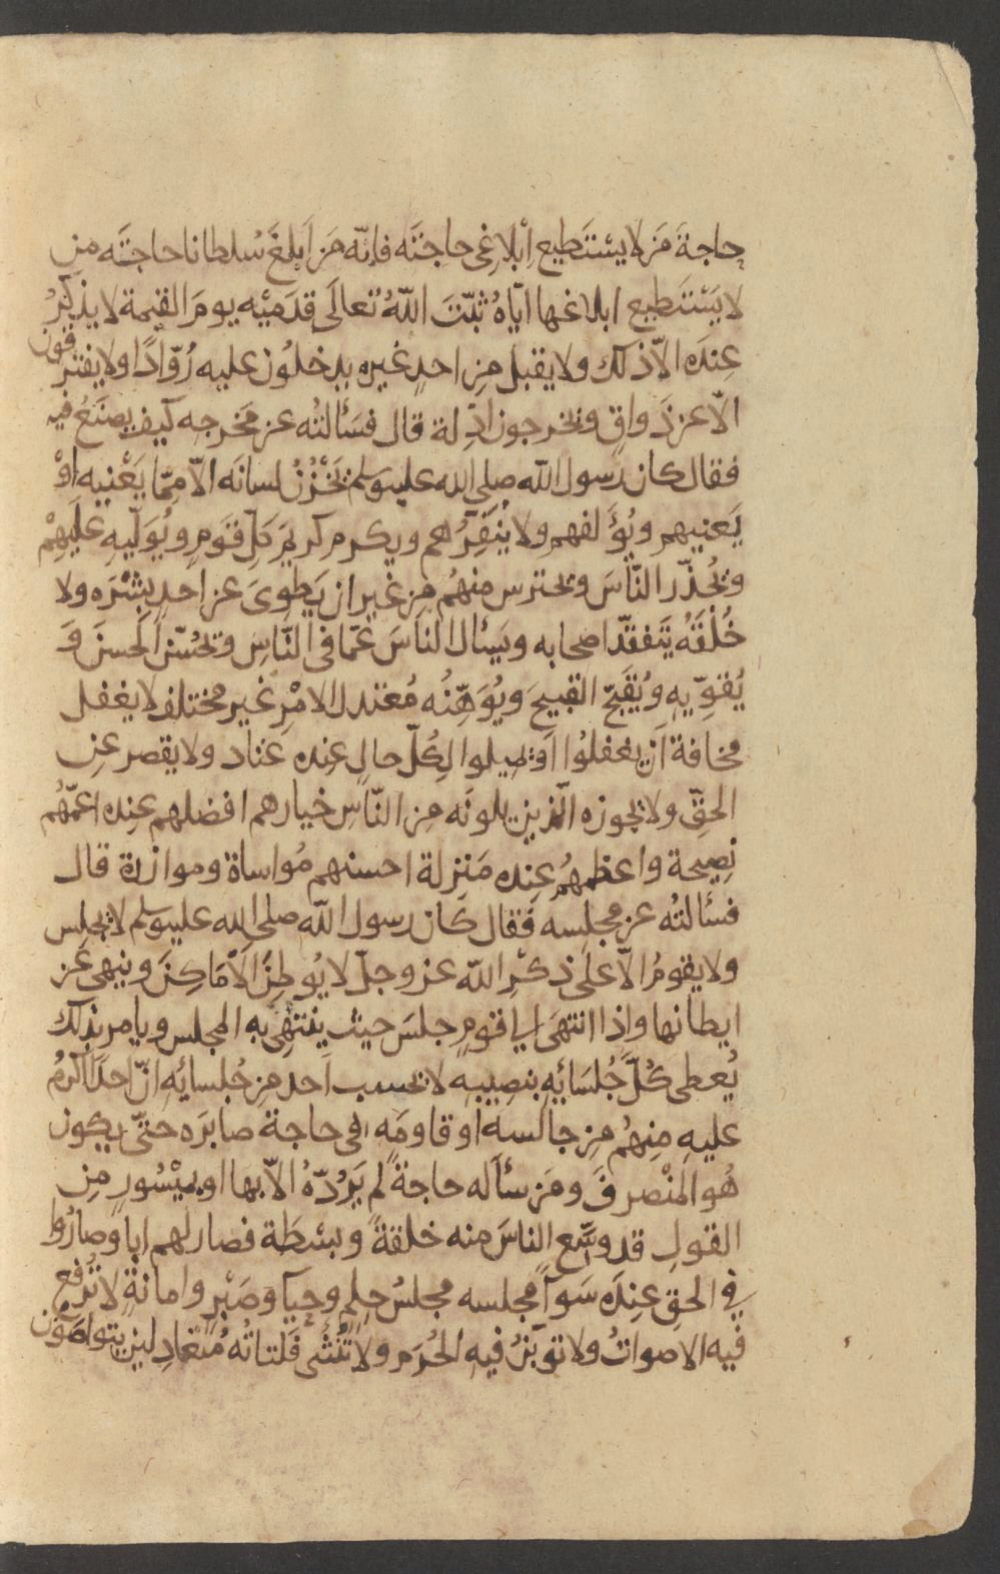 حاجةَ مَن لا يستَطيع اِبْلاغى حاجتَه فانّه مَن اَبلغَ سُلطانا حاجتَه من
لا يَسْتَطيع ابلاغها ايّاهُ ثبّتَ اللّهُ تعالَى قدَميْه يومَ القيمة لا يذكَرُ
عِندَه الاّ ذلك ولا يقبل مِن احدٍ غيره يدخلُون عليه رُوّادًا ولا يفترقون
الاّ عن ذَواقٍ ويخرجون ادِلة قال فسَألتُه عن مَخرجه كيف يصنَعُ فيه
فقال كان رَسول اللّه صلى الله عليه وسلم يَخْزُنُ لسانَه الاّ ممّا يَعْنيه اوْ
يَعنيهم ويُؤَلفهم ولا يُنَفِّرُهم ويكرم كريَم كلِّ قَومٍ ويُوَلّيهِ عليَهِمْ
ويُحذّر النّاسَ ويحترس منهُم مِن غير ان يَطوِىَ عن احدٍ بِشْرَه ولا
خُلْقَهُ يَتَفقّد اصحابه ويَسئال الناسَ عَمّا فى النّاسِ ويحُسّن الحسنَ وَ
يُقوِّيهِ ويُقَبِّحُ القبيحَ ويُوَهِّنُه مُعْتدل الامْرِ غير مختلف لا يغفل
مخافة اَن يغفلُوا اَو يميلوا لِكُلّ حالٍ عِنده عتاد ولا يقصر عنِ
الحقّ ولا يجوزه الّذين يلونَه مِن النّاسِ خيارهم افضلهم عنِده اعمّهُم
نصِيحة واعظمهُم عِنده مَنزِلة احسنهم مُواساة وموازرة قال
فسألتُه عن مجلسه فقال كان رسول اللّه صلى الله عليه وسلم لا يجلِس
ولا يقومُ الاّ علَى ذكرِ اللّه عز وجلّ لا يُوطِنُ الاَمَاكِنَ وينهى عَن
ايطانها واذا انتهَى الى قومٍ جلسَ حيث ينتهِى به المجلس ويامر بذلك
يُعطى كُلَّ جُلسَائِهِ بنصِيبِه لا يحسب اَحد مِن جُلسائِهِ انّ احدًا اكرمُ
عليهِ مِنهُم مِن جالَسه اَو قاومَه فى حاجة صابَره حتّى يكون
هُو المنْصرفَ ومَن سألَه حاجةً لم يَرُدّهُ الاّ بها او بميْسُورٍ مِن
القول قد وَسّع الناسَ منه خلقةً وبسْطَة فصار لهم ابا وصارُوا
فِي الحقِ عِندَه سَوآ مجلسه مجلسُ حِلمٍ وحَيآ وصَبْرٍ وامانةٍ لا تُرفع
فيه الاصواتُ ولا تؤبَنُ فيهِ الحُرَم ولا تُنْثَى فَلتاتُه مُتعادِلين يتواصَون